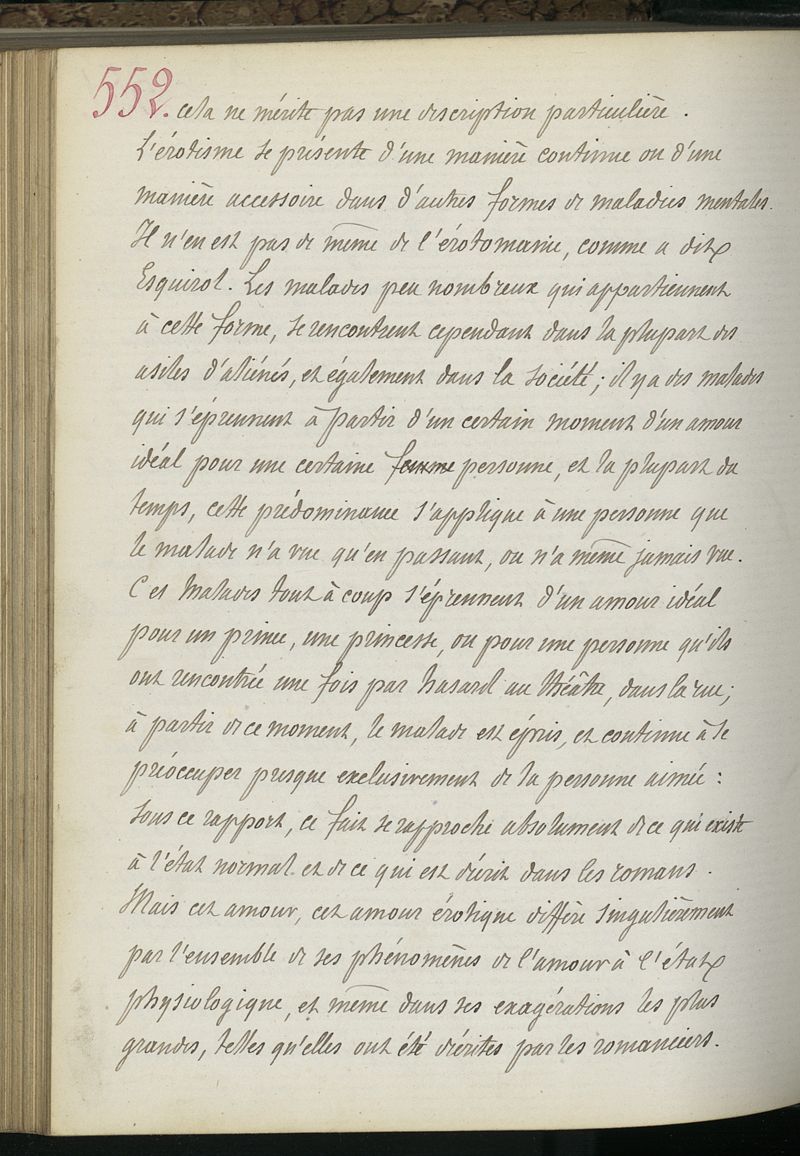 552. cela ne mérite pas une description particulière.
L'érotisme se présente d'une manière continue ou d'une
manière accessoire dans d'autres formes de maladies mentales.
Il n'en est pas de même de l'érotomanie, comme a dit
Esquirol. Les malades peu nombreux qui appartiennent
à cette forme, se rencontrent cependant dans la plupart des
asiles d'aliénés, et également dans la société ; il y a des malades
qui s'éprennent à partir d'un certain moment d'un amour
idéal pour une certaine femme personne, et la plupart du
temps, cette prédominance s'applique à une personne que
le malade n'a vue qu'en passant, ou n'a même jamais vue.
Ces malades tout à coup s'éprennent d'un amour idéal
pour un prince, une princesse, ou pour une personne qu'ils
ont rencontrée une fois par hasard au théâtre, dans la rue ;
à partir de ce moment, le malade est épris, et continue à se
préoccuper presque exclusivement de la personne aimée :
sous ce rapport, ce fait se rapproche absolument de ce qui existe
à l'état normal et de ce qui est décrit dans les romans.
Mais cet amour, cet amour érotique diffère singulièrement
par l'ensemble de ses phénomènes de l'amour à l'état
physiologique, et même dans ses exagérations les plus
grandes, telles qu'elles ont été décrites par les romanciers.